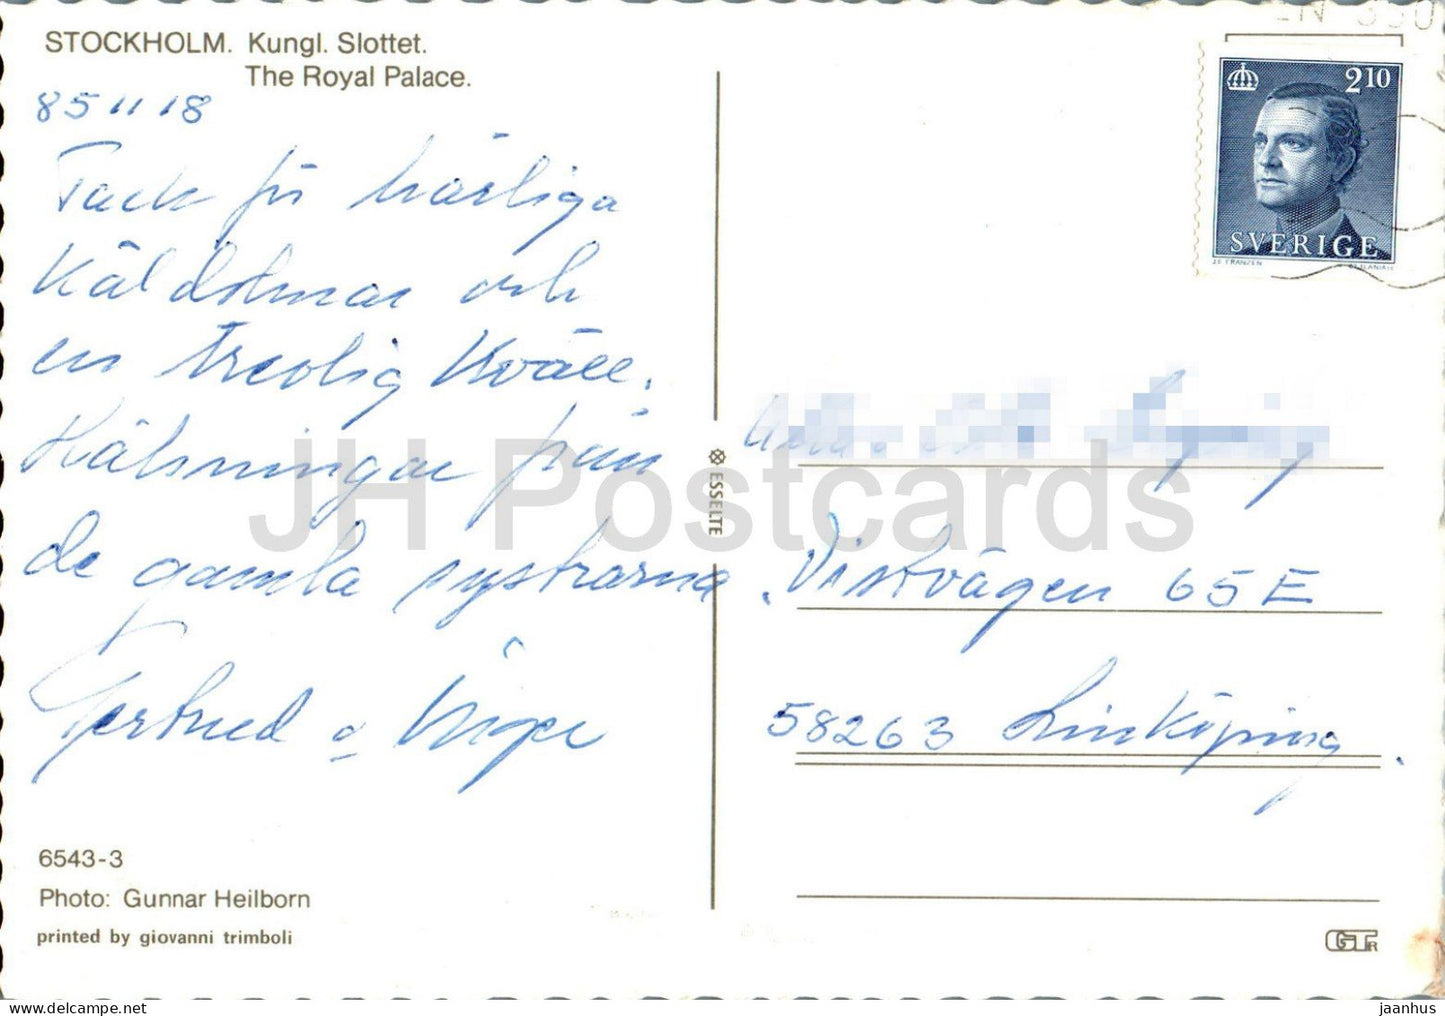 STOCKHOLM. Kungl. Slottet.
The Royal Palace.
85 11 18
Tack för härliga
Kåldolmar och
en trevlig kväll.
Hälsningar från
de gamla systrarna
Gertrud o Inger
6543-3
Photo: Gunnar Heilborn
printed by giovanni trimboli
ESSELTE
2.10
SVERIGE
Vistvägen 65 E
58263 Linköping
GT
JH Postcards
jack.the.moomin@gmail.com
jaanhus